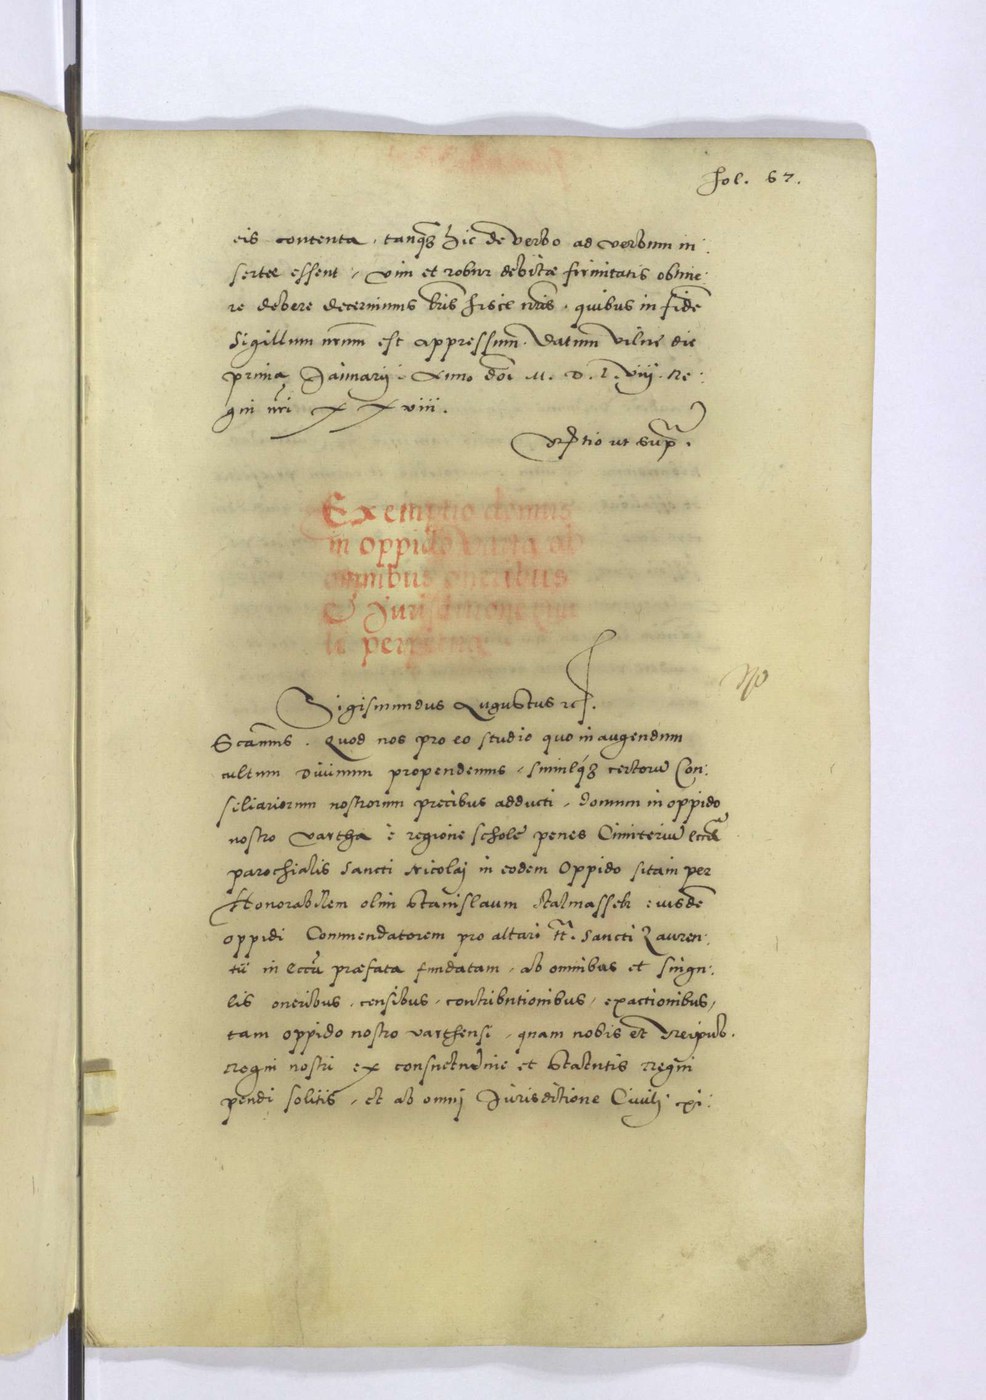 fol. 67.
eis contenta, tanq̃z hic de verbo ad verbum in:
serte essent, vim et robur debitæ firmitatis obtine:
re debere decernimus hr̃is hisce nr̃is. quibus in fidẽ
Sigillum nr̃um est appressum. Datum Vilne die
prima Januarij. Anno dñi M. D. L. viij. Re:
gni nr̃i XXviii.
ut sup̃.
Exemptio domus
in oppido Varta ab
omnibus oneribus
&
perpetuæ
Sigismundus Augustus rc̃.
Scam̃us. Quod nos pro eo studio quo in augendum
cultum divinum propendemus, simulq́z certorũ Con:
siliariorum nostrorum precibus adducti, domum in oppido
nostro Vartha è regione schole penes Cimiteriũ eccłæ
parochialis Sancti Nicolaj in eodem Oppido sitam per
Honorabilem olim Stanislaum Stalmassek eiusdẽ
oppidi Commendatorem pro altari tt̃. Sancti Lauren:
tii in eccłia præfata fundatam, ab omnibus et singu:
lis oneribus, censibus, contributionibus, exactionibus,
tam oppido nostro Varthensi, quam nobis et Reipub.
Regni nostri ex consuetudine et statutis Regni
pendi solitis, et ab omnj Jurisditione Ciuilj